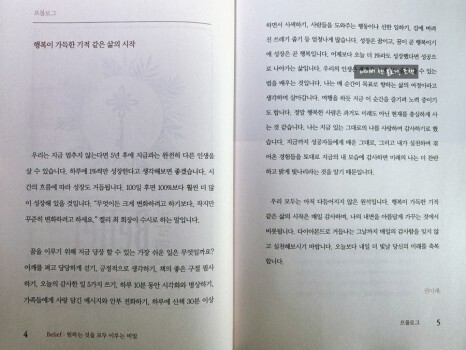 프롤로그
행복이 가득한 기적 같은 삶의 시작
우리는 지금 멈추지 않는다면 5년 후에 지금과는 완전히 다른 인생을
살 수 있습니다. 하루에 1%씩만 성장한다고 생각해보면 좋겠습니다. 시
간의 흐름에 따라 성장도 거듭됩니다. 100일 후면 100%보다 훨씬 더 많
이 성장해 있을 것입니다. "무엇이든 크게 변화하려고 하기보다, 하지만
꾸준히 변화하려고 하세요." 켈리 최 회장이 수시로 하는 말입니다.
꿈을 이루기 위해 지금 당장 할 수 있는 가장 쉬운 일은 무엇일까요?
어깨를 펴고 당당하게 걷기, 긍정적으로 생각하기, 책의 좋은 구절 필사
하기, 오늘의 감사한 일 5가지 쓰기, 하루 10분 동안 시각화와 명상하기,
가족들에게 사랑 담긴 메시지와 안부 전화하기, 하루에 산책 30분 이상
4 Belief : 원하는 것을 모두 이루는 비밀
하면서 사색하기, 사람들을 도와주는 행동이나 선한 일하기, 길에 버려
진 쓰레기 줍기 등 엄청나게 많습니다. 성공은 꿈이고, 꿈이 곧 행복이기
에 성장은 곧 행복입니다. 어제보다 오늘 더 1%라도 성장했다면 성공으
로 나아가는 삶입니다. 우리의 인생은 수 있는
법을 배우는 것입니다. 나는 매 순간이 목표로 향하는 삶의 여정이라고
생각하며 살아갑니다. 여행을 하듯 지금 이 순간을 즐기려 노력 중이기
도 합니다. 정말 행복한 사람은 과거도 미래도 아닌 현재를 충실하게 사
는 것 같습니다. 나는 지금 있는 그대로의 나를 사랑하며 감사하기로 했
습니다. 지금까지 성공자들에게 배운 그대로, 그리고 내가 실천하며 겪
어온 경험들을 토대로 지금의 내 모습에 감사하면 미래의 나는 더 찬란
하고 밝게 빛나리라는 것을 알기 때문입니다.
우리 모두는 아직 다듬어지지 않은 원석입니다. 행복이 가득한 기적
같은 삶의 시작은 매일 감사하며, 나의 내면을 아름답게 가꾸는 것에서
비롯됩니다. 다이아몬드로 거듭나는 그날까지 매일의 감사함을 잊지 않
고 실천해보시기 바랍니다. 오늘보다 내일 더 빛날 당신의 미래를 축복
합니다.
프롤로그 5